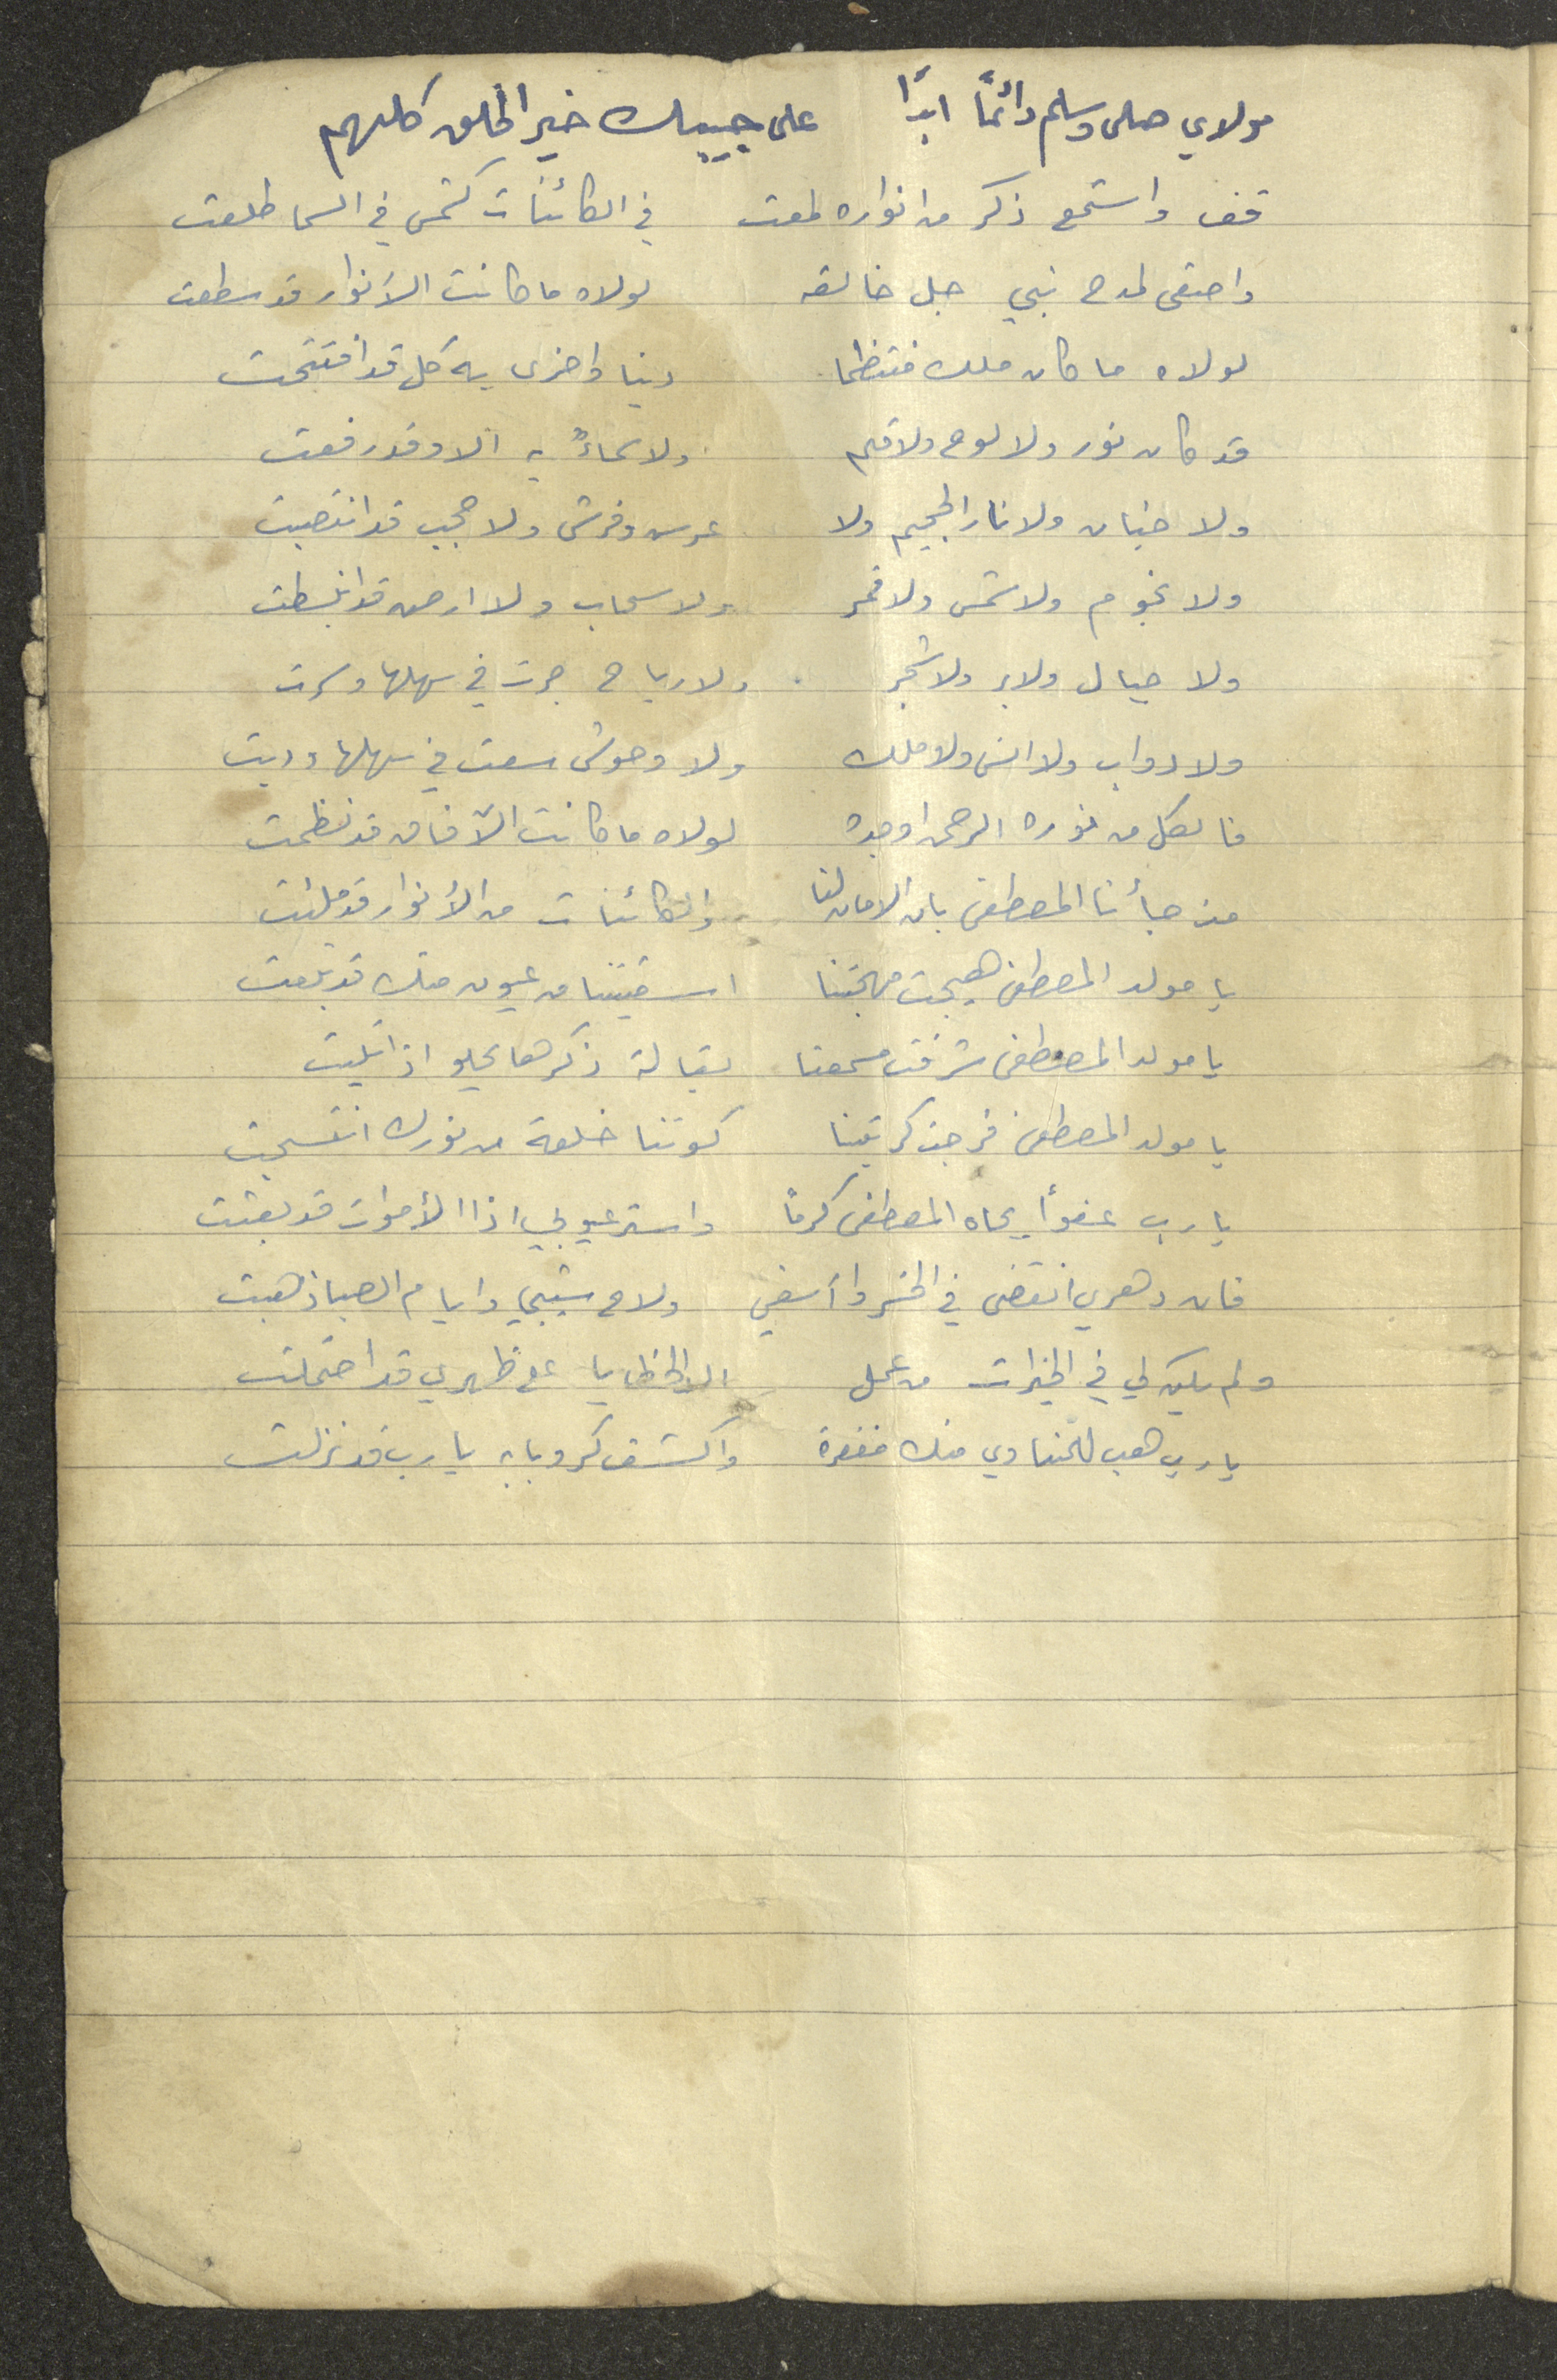 مولاي صلى وسلم دائمًا ابدًا على حبيبك خير الخلق كلهم
قف واستمع ذكر من انواره لمعت في الكائنات كشمس في السما طلعت
واصغى لمدح نبي جل خالقه لولاه ما كانت الأنوار قد سطعت
لولاه ما كان ملك منتظما دنيا واخرى به كل قد افتتحت
قد كان نور ولا لوح ولا قلم ولا سماءً به الا وقد رفعت
ولا جنان ولا نار الجحيم ولا عرس وفرش ولا حجب قد انتصبت
ولا نجوم ولا شمس ولا قمر ولا سحاب ولا ارض قد انبسطت
ولا جبال ولا بر ولا شجر ولا رياح جرت في سهلها وسرت
ولا دواب ولا انس ولا ملك ولا وحوش سعت في سهلها ودبت
فالكل من نوره الرحمن اوجده لولاه ما كانت الآفاق قد نظمت
مذ جأنا المصطفى بان الامان لنا والكائنات من الأنوار قد ملئت
يا مولد المصطفى هيجت مهجتنا اسقيتنا من عيون منك قد نبعت
يا مولد المصطفى شرفت مسمعنا ذكرها يحلو اذا تليت
يا مولد المصطفى فرجت كربتنا كسوتنا خلعة من نورك انتسجت
يا رب عفواً بجاه المصطفى كرمًا واستر عيوبي اذا الأموات قد بعثت
فان دهري انقضى في الخسر وا أسفي ولاح شيبي وايام الصبا ذهبت
ولم يكن لي في الخيرات من عمل الا الخطايا على ظهري قد احتملت
يا رب هب منك مغفرة واكشف كروبا به يا رب قد نزلت